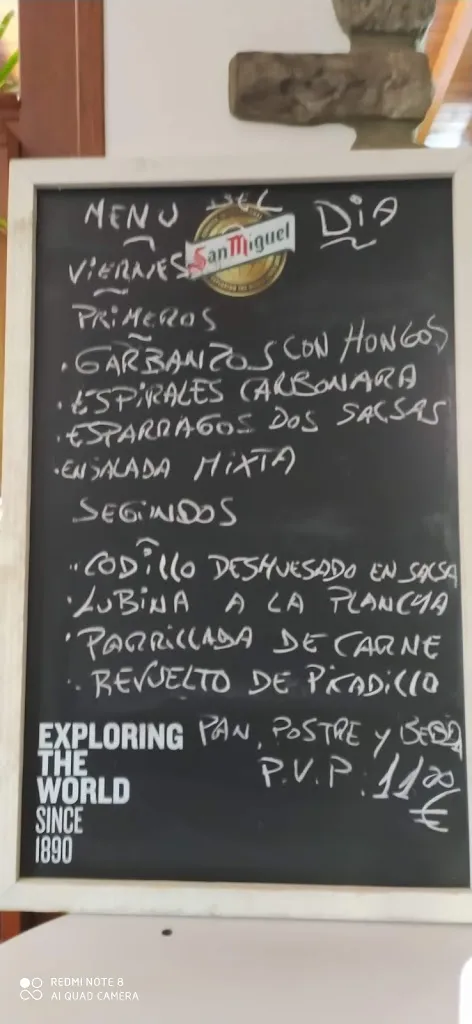 MENU DEL DIA
San Miguel
VIERNES
PRIMEROS
. GARBANZOS CON HONGOS
. ESPIRALES CARBONARA
. ESPARRAGOS DOS SALSAS
. ENSALADA MIXTA
SEGUNDOS
. CODILLO DESHUESADO EN SALSA
. LUBINA A LA PLANCHA
. PARRILLADA DE CARNE
. REVUELTO DE PICADILLO
PAN, POSTRE Y BEBIDA
P.V.P: 11'00
€
EXPLORING
THE
WORLD
SINCE
1890
REDMI NOTE 8
AI QUAD CAMERA